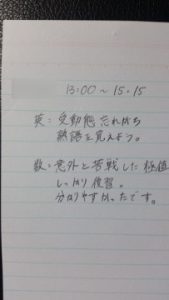 13:00～15:15
英：受動態忘れがち
熟語を覚えよう。
数：意外と苦戦した極値
しっかり復習。
分かりやすかったです。